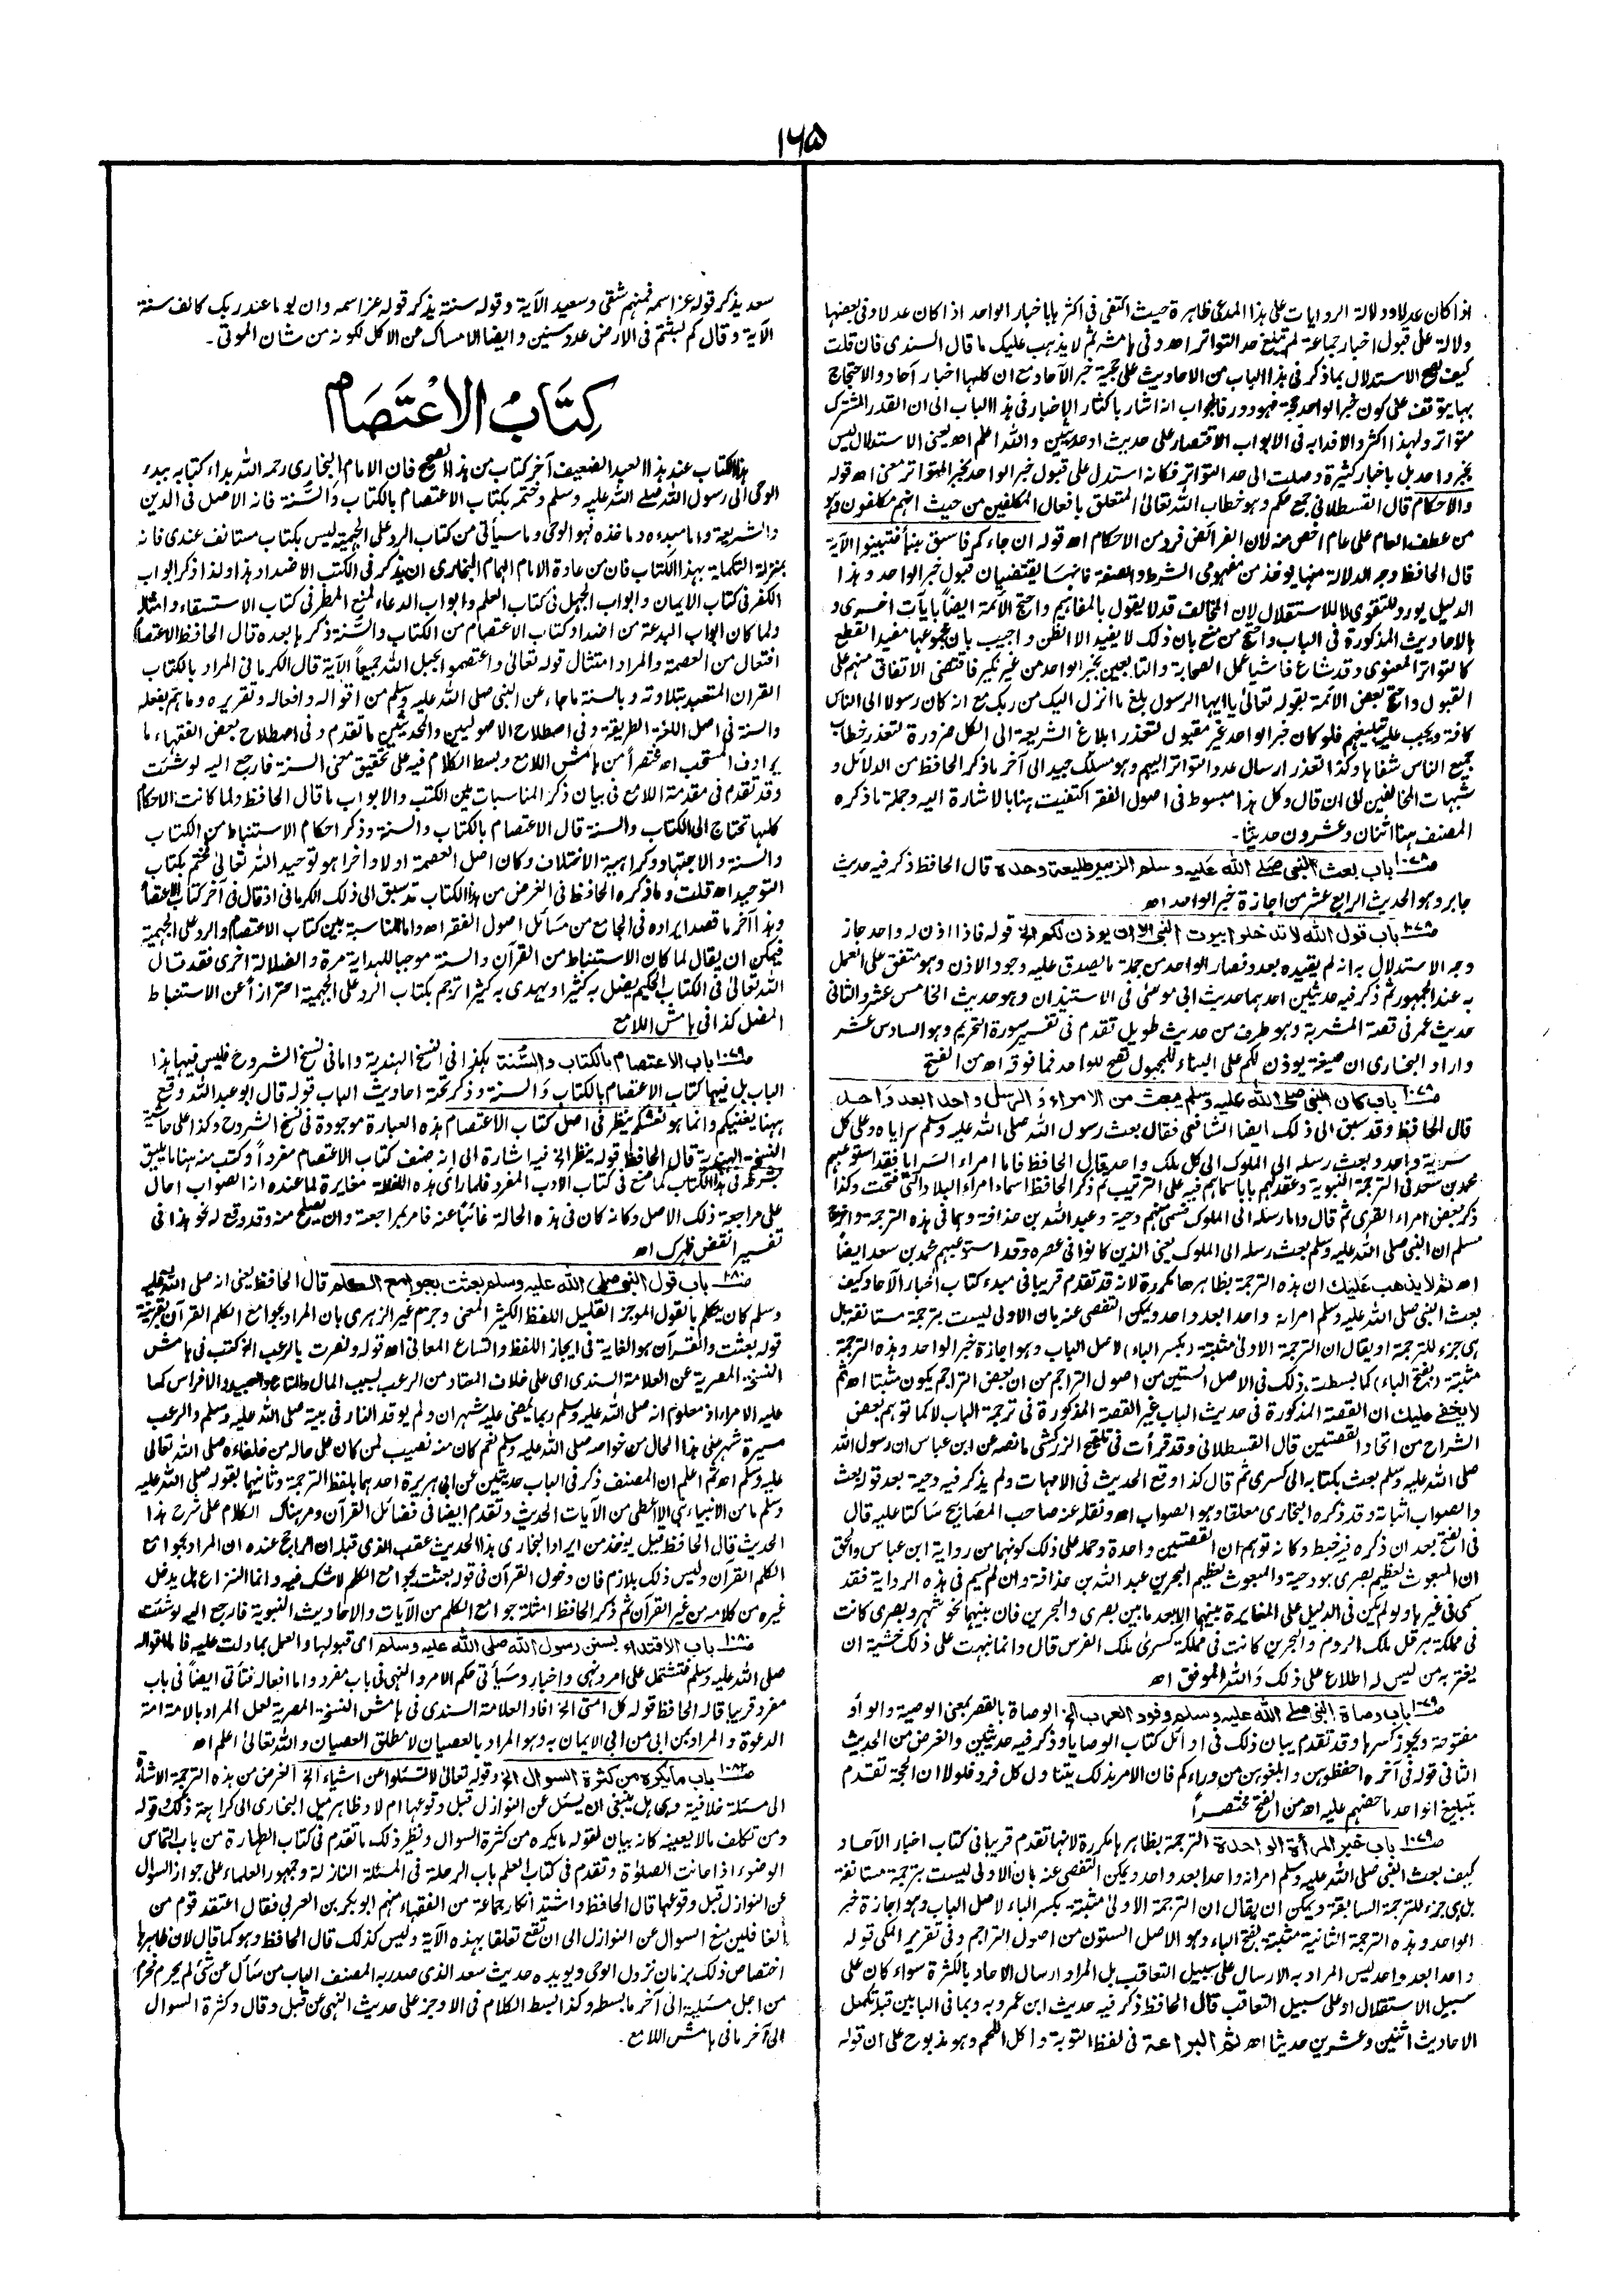 ١٦٥
اذا كان عدلا ودلالة الروايات على هذا المدعى ظاهرة حيث اكتفى فى اكثرها باخبار الواحد اذا كان عدلا وفى بعضها
دلالة على قبول اخبار جماعة لم تبلغ حد التواتر اه وفى هامشه ثم لا يذهب عليك ما قال السندى فان قلت
كيف يصح الاستدلال بما ذكر فى هذا الباب من الاحاديث على حجية خبر الآحاد مع ان كلها اخبار آحاد والاحتجاج
بها يتوقف على كون خبر الواحد حجة فهو دور فالجواب انه اشار باكثار الاخبار فى هذا الباب الى ان القدر المشترك
متواتر ولهذا اكثر والا فدابه فى الابواب الاقتصار على حديث او حديثين والله اعلم اه يعنى الاستدلال ليس
بخبر واحد بل باخبار كثيرة وصلت الى حد التواتر فكانه استدل على قبول خبر الواحد بخبر المتواتر معنى اه قوله
والاحكام قال القسطلانى جمع حكم وهو خطاب الله تعالى المتعلق بافعال المكلفين من حيث انهم مكلفون وهو
من عطف العام على عام اخص منه لان الفرائض فرد من الاحكام اه قوله ان جاءكم فاسق بنبأ فتبينوا الآية
قال الحافظ وجه الدلالة منها يوخذ من مفهومى الشرط والصفة فانهما يقتضيان قبول خبر الواحد وهذا
الدليل يورد للتقوى لا للاستقلال لان المخالف قد لا يقول بالمفاهيم واحتج الأئمة ايضاً بآيات اخرى و
بالاحاديث المذكورة فى الباب واحتج من منع بان ذلك لا يفيد الا الظن واجيب بان مجموعها مفيد القطع
كالتواتر المعنوى وقد شاع فاشيا عمل الصحابة والتابعين بخبر الواحد من غير نكير فاقتضى الاتفاق منهم على
القبول واحتج بعض الائمة بقوله تعالى يا ايها الرسول بلغ ما انزل اليك من ربك مع انه كان رسولا الى الناس
كافة ويجب عليه تبليغهم فلو كان خبر الواحد غير مقبول لتعذر ابلاغ الشريعة الى الكل ضرورة لتعذر خطاب
جميع الناس شفاها وكذا تعذر ارسال عدد التواتر اليهم وهو مسلك جيد الى آخر ما ذكر الحافظ من الدلائل و
شبهات المخالفين الى ان قال وكل هذا مبسوط فى اصول الفقه اكتفيت هنا بالاشارة اليه وجملة ما ذكره
المصنف هنا اثنان وعشرون حديثا۔
ص١٠٧٨ باب بعث النبى صلى الله عليه وسلم الزبير طليعة وحده قال الحافظ ذكر فيه حديث
جابر وهو الحديث الرابع عشر من اجازة خبر الواحد اه
ص١٠٧٨ باب قول الله لا تدخلوا بيوت النبى الا ان يوذن لكم الخ قوله فاذا اذن له واحد جاز
وجه الاستدلال به انه لم يقيده بعدد فصار الواحد من جملة ما يصدق عليه وجود الاذن وهو متفق على العمل
به عند الجمهور ثم ذكر فيه حديثين احدهما حديث ابى موسى فى الاستيذان وهو حديث الخامس عشر والثانى
حديث عمر فى قصة المشربة وهو طرف من حديث طويل تقدم فى تفسير سورة التحريم وهو السادس عشر
واراد البخارى ان صيغة يوذن لكم على البناء للمجهول تصح للواحد فما فوقه اه من الفتح
ص١٠٧٨ باب ما كان النبى صلى الله عليه وسلم يبعث من الامراء والرسل واحدا بعد واحد
قال الحافظ وقد سبق الى ذلك ايضا الشافعى فقال بعث رسول الله صلى الله عليه وسلم سراياه وعلى كل
سرية واحد وبعث رسله الى الملوك الى كل ملك واحد قال الحافظ فاما امراء السرايا فقد استوعبهم
محمد بن سعد فى الترجمة النبوية وعقد لهم بابا سماهم فيه على الترتيب ثم ذكر الحافظ اسماء امراء البلاد التى فتحت وكذا
ذكر بعض امراء القرى ثم قال واما رسله الى الملوك فسمى منهم دحية وعبد الله بن حذافة وهما فى هذه الترجمة واخرج
مسلم ان النبى صلى الله عليه وسلم بعث رسله الى الملوك يعنى الذين كانوا فى عصره وقد استوعبهم محمد بن سعد ايضاً
اه ثم لا يذهب عليك ان هذه الترجمة بظاهرها مكررة لانه قد تقدم قريبا فى مبدء كتاب أخبار الآحاد وكيف
بعث النبى صلى الله عليه وسلم امراءه واحدا بعد واحد ويمكن التفصى عنه بان الاولى ليست بترجمة مستانفة بل
هى جزء للترجمة او يقال ان الترجمة الاولى مثبتة (بكسر الباء) لاصل الباب وهو اجازة خبر الواحد وهذه الترجمة
مثبتة (بفتح الباء) كما بسطت ذلك فى الاصل الستين من اصول التراجم من ان بعض التراجم يكون مثبتا اه ثم
لا يخفى عليك ان القصة المذكورة فى حديث الباب غير القصة المذكورة فى ترجمة الباب لا كما توهم بعض
الشراح من اتحاد القصتين قال القسطلانى وقد قرأت فى تنقيح الزركشى ما نصه عن ابن عباس ان رسول الله
صلى الله عليه وسلم بعث بكتابه الى كسرى ثم قال كذا وقع الحديث فى الامهات ولم يذكر فيه دحية بعد قوله بعث
والصواب اثباته وقد ذكره البخارى معلقا وهو الصواب اه ونقله عنه صاحب المصابيح ساكتا عليه قال
فى الفتح بعد ان ذكره فيه خبط وكانه توهم ان القصتين واحدة وحمله على ذلك كونهما من رواية ابن عباس والحق
ان المبعوث لعظيم بصرى هو دحية والمبعوث لعظيم البحرين عبد الله بن حذافة وان لم يسم فى هذه الرواية فقد
سمى فى غيرها ولو لم يكن فى الدليل على المغايرة بينهما الا بعد ما بين بصرى والبحرين فان بينهما نحو شهر وبصرى كانت
فى مملكة هرقل ملك الروم والبحرين كانت فى مملكة كسرى ملك الفرس قال وانما نبهت على ذلك خشية ان
يغتر به من ليس له اطلاع على ذلك والله الموفق اه
ص١٠٧٩ باب وصاة النبى صلى الله عليه وسلم وفود العرب الخ الوصاة بالقصر بمعنى الوصية والواو
مفتوحة ويجوز كسرها وقد تقدم بيان ذلك فى اوائل كتاب الوصايا وذكر فيه حديثين والغرض من الحديث
الثانى قوله فى آخره احفظوهن وابلغوهن من وراءكم فان الامر بذلك يتناول كل فرد فلولا ان الحجة تقدم
بتبليغ الواحد ما حضهم عليه اه من الفتح مختصراً
ص١٠٧٩ باب خبر المرأة الواحدة الترجمة بظاهرها مكررة لانها تقدم قريبا فى كتاب اخبار الآحاد
كيف بعث النبى صلى الله عليه وسلم امراءه واحدا بعد واحد ويمكن التفصى عنه بان الاولى ليست بترجمة مستانفة
بل هى جزء للترجمة السابقة ويمكن ان يقال ان الترجمة الاولى مثبتة بكسر الباء لاصل الباب وهو اجازة خبر
الواحد وهذه الترجمة الثانية مثبتة بفتح الباء وهو الاصل الستون من اصول التراجم وفى تقرير المكى قوله
واحدا بعد واحد ليس المراد به الارسال على سبيل التعاقب بل المراد ارسال الآحاد بالكثرة سواء كان على
سبيل الاستقلال او على سبيل التعاقب قال الحافظ ذكر فيه حديث ابن عمر وبه وبما فى البابين قبله تكمل
الاحاديث اثنين وعشرين حديثا اه ثم البراعة فى لفظ التوبة واكل اللحم وهو مذبوح على ان قوله
سعد يذكر قوله عز اسمه فمنهم شقى وسعيد الآية وقوله سنة يذكر قوله عز اسمه وان يوما عند ربك كالف سنة
الآية وقال كم لبثتم فى الارض عدد سنين وايضا الامساك عن الاكل لكونه من شان الموتى۔
كِتَابُ الْاعْتَصَام
هذا الكتاب عند هذا العبد الضعيف آخر كتاب من هذا الصحيح فان الامام البخارى رحمه الله بدأ كتابه ببدء
الوحى الى رسول الله صلى الله عليه وسلم وختمه بكتاب الاعتصام بالكتاب والسنة فانه الاصل فى الدين
والشريعة واما مبدءه وماخذه فهو الوحى وما سيأتى من كتاب الرد على الجهمية ليس بكتاب مستانف عندى فانه
بمنزلة التكملة بهذا الكتاب فان من عادة الامام الهمام البخارى ان يذكر فى الكتب الاضداد هذا ولذا ذكر ابواب
الكفر فى كتاب الايمان وابواب الجهل فى كتاب العلم وابواب الدعاء لمنع المطر فى كتاب الاستسقاء وامثاله
ولما كان ابواب البدعة من اضداد كتاب الاعتصام من الكتاب والسنة ذكرها بعده قال الحافظ الاعتصام
افتعال من العصمة والمراد امتثال قوله تعالى واعتصموا بحبل الله جميعاً الآية قال الكرمانى المراد بالكتاب
القرآن المتعبد بتلاوته وبالسنة ما جاء عن النبى صلى الله عليه وسلم من اقواله وافعاله وتقريره وما هم بفعله
والسنة فى اصل اللغة الطريقة وفى اصطلاح الاصوليين والمحدثين ما تقدم وفى اصطلاح بعض الفقهاء ما
يرادف المستحب اه مختصراً من هامش اللامع وبسط الكلام فيه على تحقيق معنى السنة فارجع اليه لو شئت
وقد تقدم فى مقدمة اللامع فى بيان ذكر المناسبات بين الكتب والابواب ما قال الحافظ ولما كانت الاحكام
كلها تحتاج الى الكتاب والسنة قال الاعتصام بالكتاب والسنة وذكر احكام الاستنباط من الكتاب
والسنة والاجتهاد وكراهية الاختلاف وكان اصل العصمة اولا واخرا هو توحيد الله تعالى فختم بكتاب
التوحيد اه قلت وما ذكره الحافظ فى الغرض من هذا الكتاب قد سبق الى ذلك الكرمانى اذ قال فى آخر كتاب الاعتصام
وهذا آخر ما قصد ايراده فى الجامع من مسائل اصول الفقه اه واما المناسبة بين كتاب الاعتصام والرد على الجهمية
فيمكن ان يقال لما كان الاستنباط من القرآن والسنة موجبا للهداية مرة والضلالة اخرى فقد قال
الله تعالى فى الكتاب الحكيم يضل به كثيرا ويهدى به كثيرا ترجم بكتاب الرد على الجهمية احترازاً عن الاستنباط
المضل كذا فى هامش اللامع
ص١٠٧٩ باب الاعتصام بالكتاب والسُّنة هكذا فى النسخ الهندية واما فى نسخ الشروح فليس فيها هذا
الباب بل فيها كتاب الاعتصام بالكتاب والسنة وذكر تحته احاديث الباب قوله قال ابو عبد الله وقع
ههنا يغنيكم وانما هو نعشكم ينظر فى اصل كتاب الاعتصام هذه العبارة موجودة فى نسخ الشروح وكذا على حاشية
النسخ الهندية قال الحافظ قوله ينظر الخ فيه اشارة الى انه صنف كتاب الاعتصام مفرداً وكتب منه هنا ما يليق
بشرطه فى هذا الكتاب كما صنع فى كتاب الادب المفرد فلما رأى هذه اللفظة مغايرة لما عنده انه الصواب احال
على مراجعة ذلك الاصل وكانه كان فى هذه الحالة غائبًا عنه فامر بمراجعته وان يصلح منه وقد وقع له نحو هذا فى
تفسير انقض ظهرك اه
ص١٠٨٠ باب قول النبى صلى الله عليه وسلم بعثت بجوامع الكلم قال الحافظ يعنى انه صلى الله عليه
وسلم كان يتكلم بالقول الموجز القليل اللفظ الكثير المعنى وجزم غير الزهرى بان المراد بجوامع الكلم القرآن بقرينة
قوله بعثت والقرآن هو الغاية فى ايجاز اللفظ واتساع المعانى اه قوله ونصرت بالرعب الخ كتب فى هامش
النسخة المصرية عن العلامة السندى اى على خلاف المعتاد من الرعب بسبب المال والمتاع والعبيد والافراس كما
عليه الامراء اذ معلوم انه صلى الله عليه وسلم ربما يمضى عليه شهران ولم يوقد النار فى بيته صلى الله عليه وسلم والرعب
مسيرة شهر على هذا الحال من خواصه صلى الله عليه وسلم نعم كان منه نصيب لمن كان على حاله من خلفاءه صلى الله تعالى
عليه وسلم اه ثم اعلم ان المصنف ذكر فى الباب حديثين عن ابى هريرة احدهما بلفظ الترجمة وثانيهما بقوله صلى الله عليه
وسلم ما من الانبياء نبى الا اعطى من الآيات الحديث وتقدم ايضا فى فضائل القرآن ومر هناك الكلام على شرح هذا
الحديث قال الحافظ قيل يوخذ من ايراد البخارى هذا الحديث عقب الذى قبله ان الراجح عنده ان المراد بجوامع
الكلم القرآن وليس ذلك بلازم فان دخول القرآن فى قوله بعثت بجوامع الكلم لا شك فيه وانما النزاع هل يدخل
غيره من كلامه من غير القرآن ثم ذكر الحافظ امثلة جوامع الكلم من الآيات والاحاديث النبوية فارجع اليه لو شئت
ص١٠٨٠ باب الاقتداء بسنن رسول الله صلى الله عليه وسلم اى قبولها والعمل بما دلت عليه فاما اقواله
صلى الله عليه وسلم فتشتمل على امر ونهى واخبار وسيأتى حكم الامر والنهى فى باب مفرد واما افعاله فتأتى ايضاً فى باب
مفرد قريبا قاله الحافظ قوله كل امتى الخ افاد العلامة السندى فى هامش النسخة المصرية لعل المراد بالامة امة
الدعوة والمراد بمن ابى من ابى الايمان به وهو المراد بالعصيان لا مطلق العصيان والله تعالى اعلم اه
ص١٠٨٢ باب ما يكره من كثرة السوال الخ وقوله تعالى لا تسئلوا عن اشياء الخ الغرض من هذه الترجمة الاشارة
الى مسئلة خلافية وهى هل ينبغى ان يسئل عن النوازل قبل وقوعها ام لا وظاهر ميل البخارى الى كراهة ذلك وقوله
ومن تكلف ما لا يعينه كانه بيان لقوله ما يكره من كثرة السوال ونظير ذلك ما تقدم فى كتاب الطهارة من باب التماس
الوضوء اذا حانت الصلوٰة وتقدم فى كتاب العلم باب الرحلة فى المسئلة النازلة وجمهور العلماء على جواز السوال
عن النوازل قبل وقوعها قال الحافظ واشتد انكار جماعة من الفقهاء منهم ابوبكر بن العربى فقال اعتقد قوم من
الغافلين منع السوال عن النوازل الى ان تقع تعلقا بهذه الآية وليس كذلك قال الحافظ وهو كما قال لان ظاهرها
اختصاص ذلك بزمان نزول الوحى ويويده حديث سعد الذى صدر به المصنف الباب من سأل عن شئ لم يحرم فحرم
من اجل مسئلته الى آخر ما بسطه وكذا ابسط الكلام فى الاوجز على حديث النهى عن قيل وقال وكثرة السوال
الى آخر ما فى هامش اللامع۔